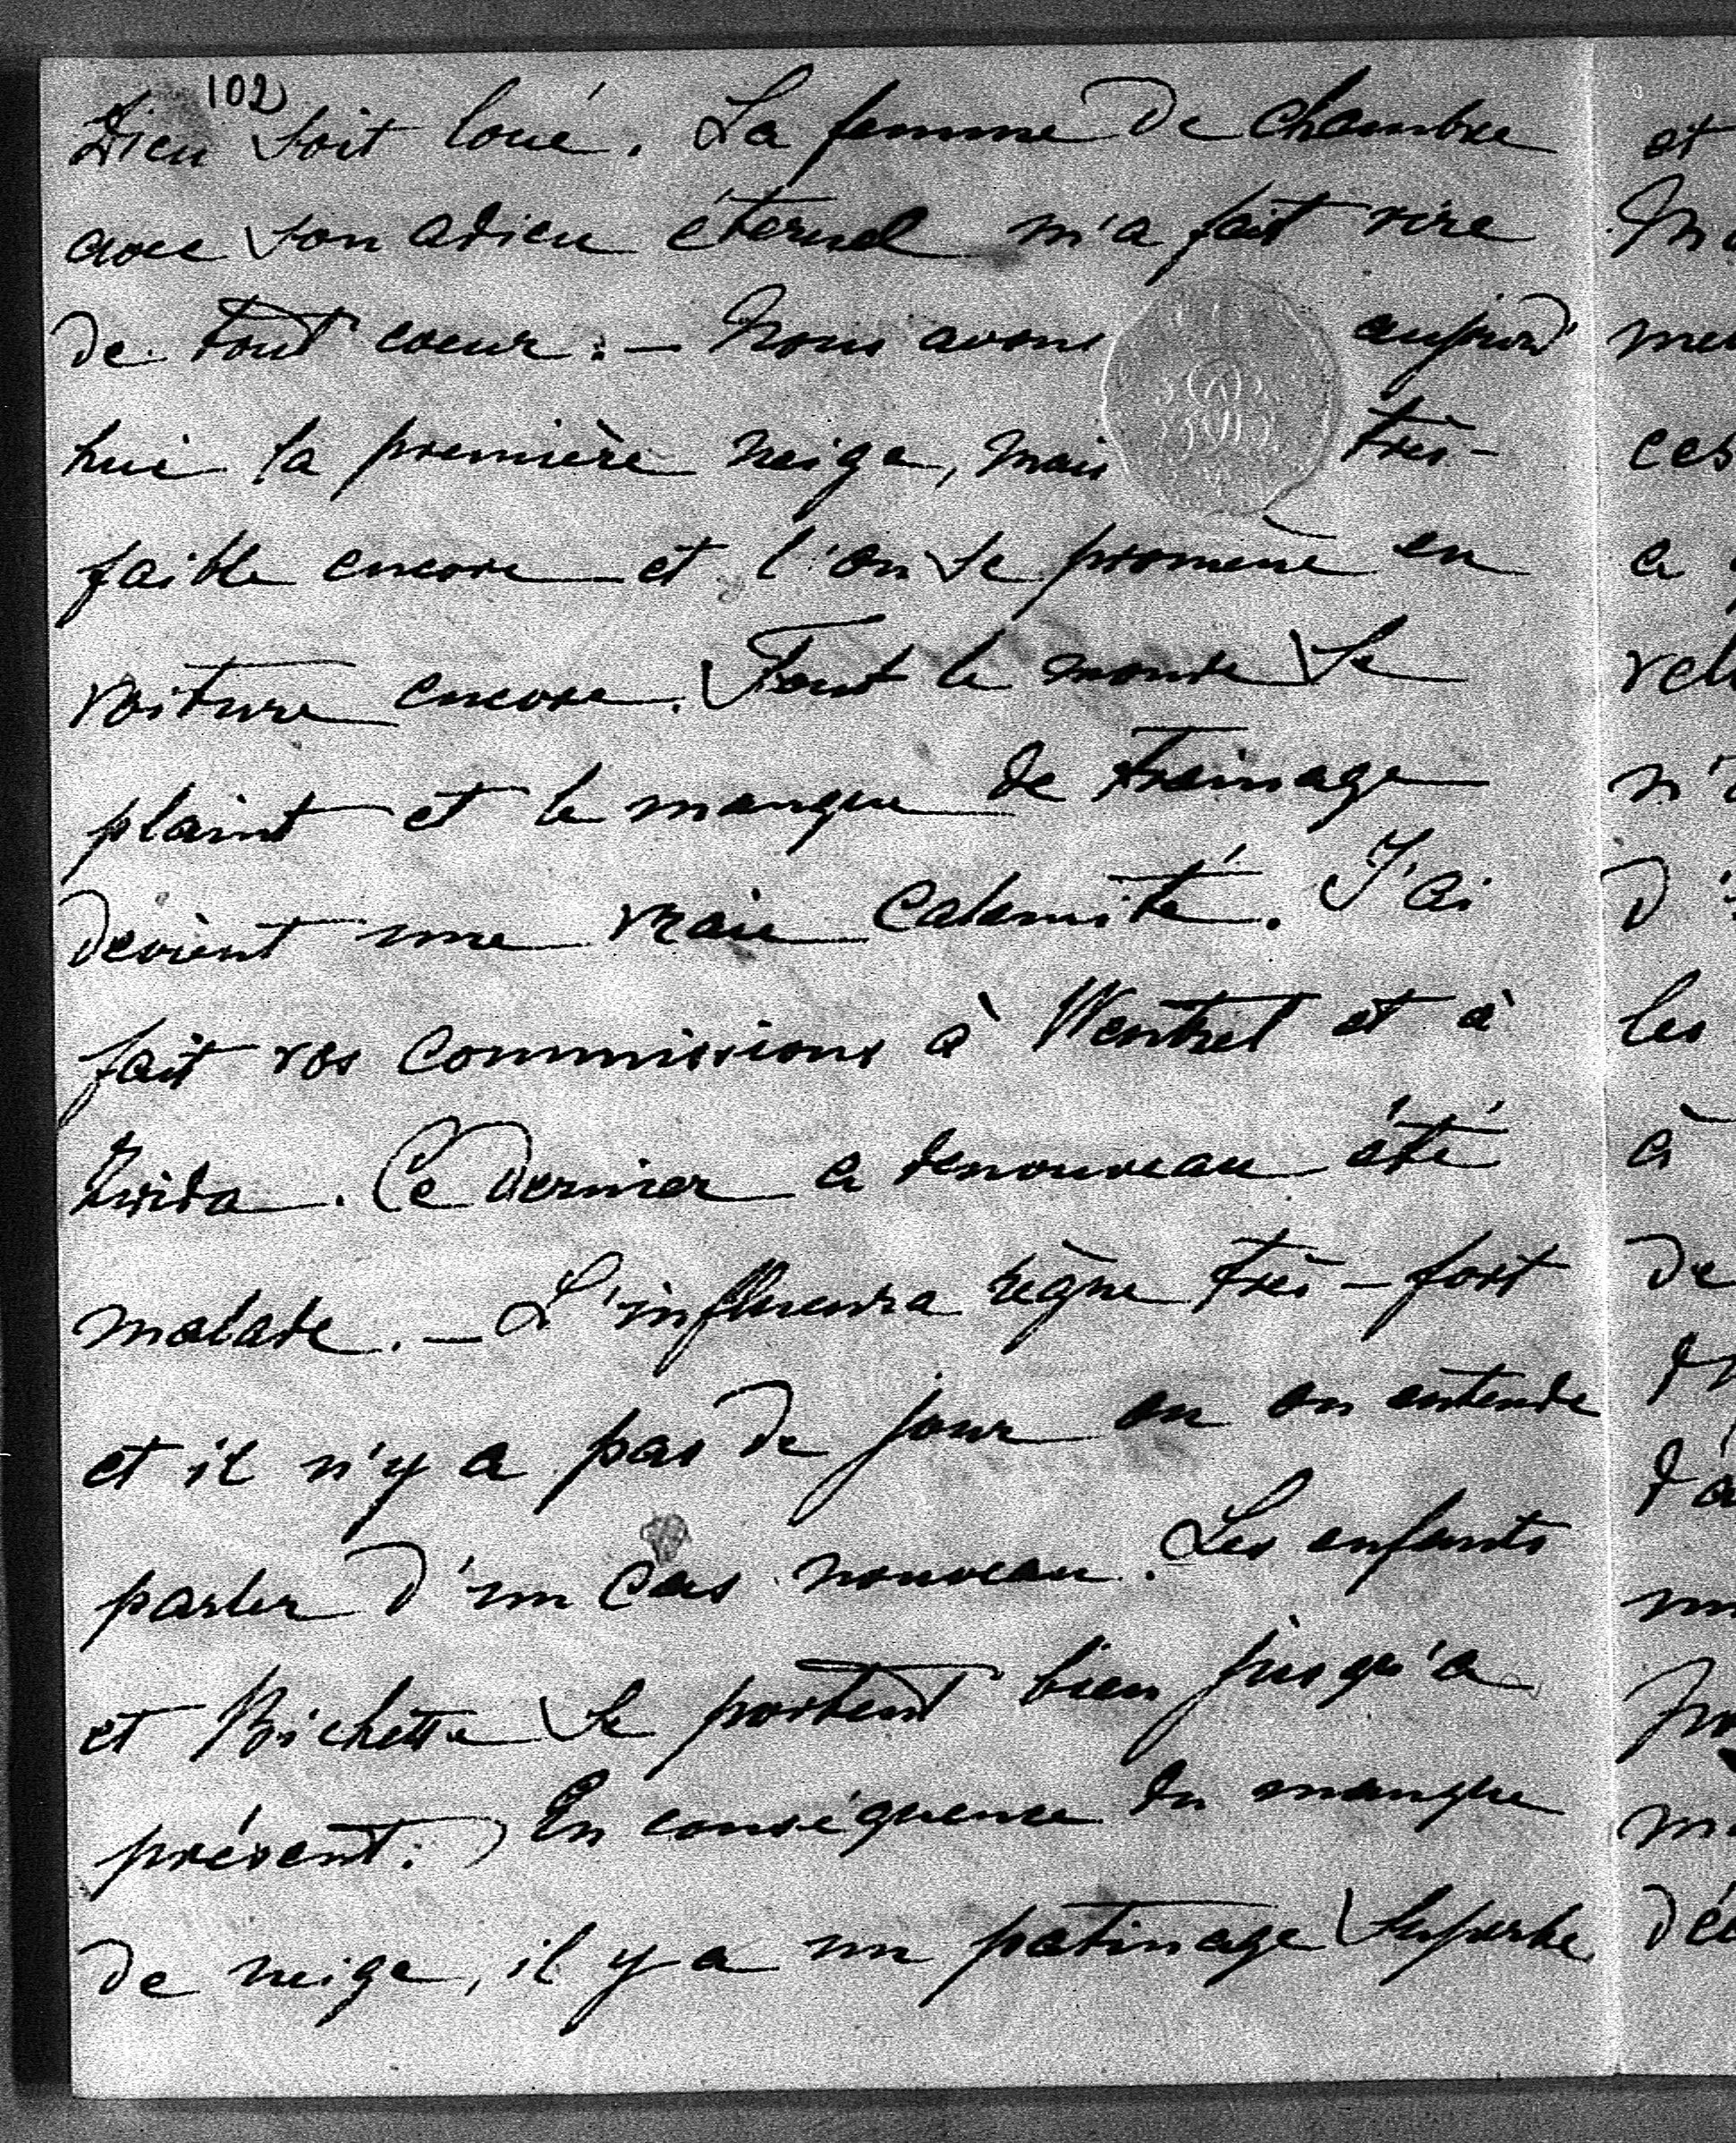 102
Dieu soit loué. La femme de chambre
avec son adieu éternel m'a fait rire
de tout coeur. — Nous avons aujourd'
hui la première neige, mais très-
faible encore et l'on se promène en
voiture encore. Tout le monde se
plaint et le manque de traînage
devient une vraie calamité. J'ai
fait vos commissions à Wentzel et à
. Ce dernier a denouveau été
malade. — L'influenza règne très-fort
et il n'y a pas de jour ou on entende
parler d'un cas nouveau. Les enfants
et Bichette se portent bien jusqu'a
présent. En conséquence du manque
de neige, il y a un patinage superbe
et
ces
a
n'
d'
les
à
de